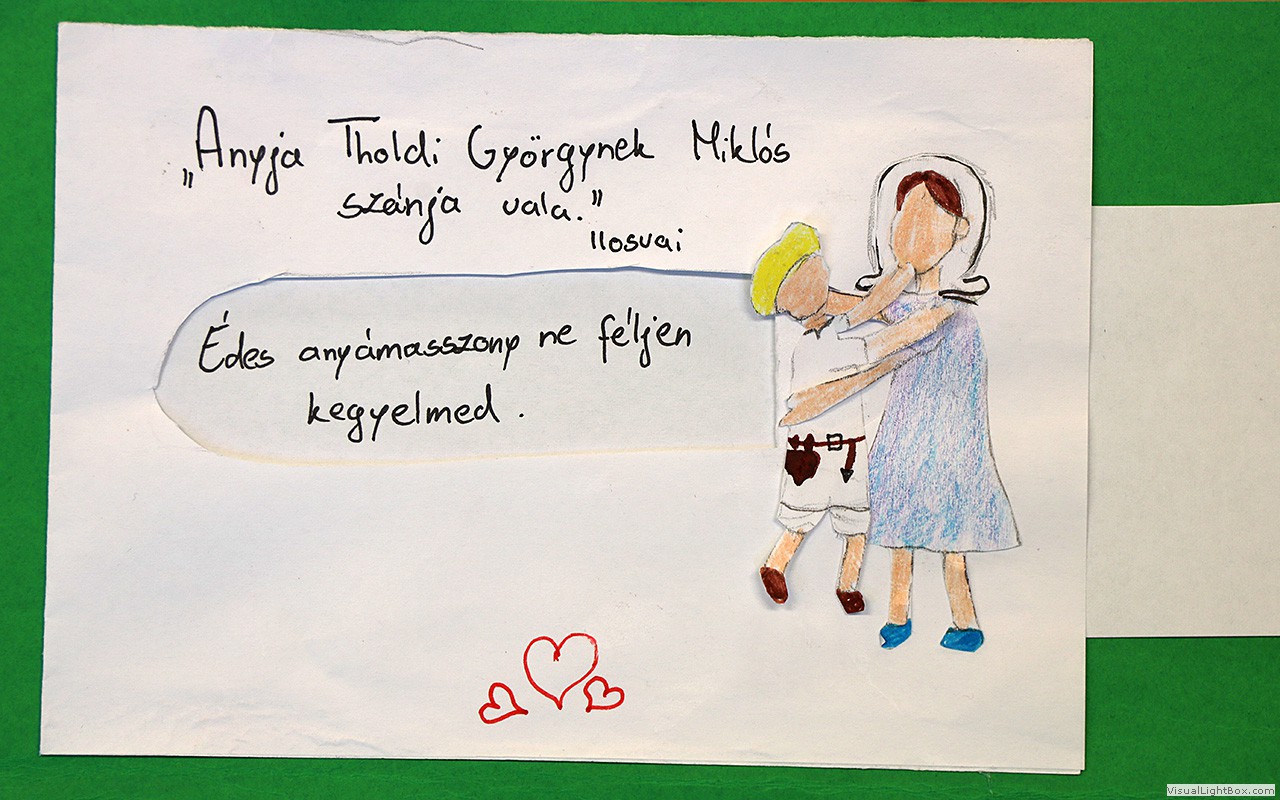 „Anyja Tholdi Györgynek Miklós
szánja vala."
Ilosvai
Édes anyámasszony ne féljen
kegyelmed.
VisualLightBox.com